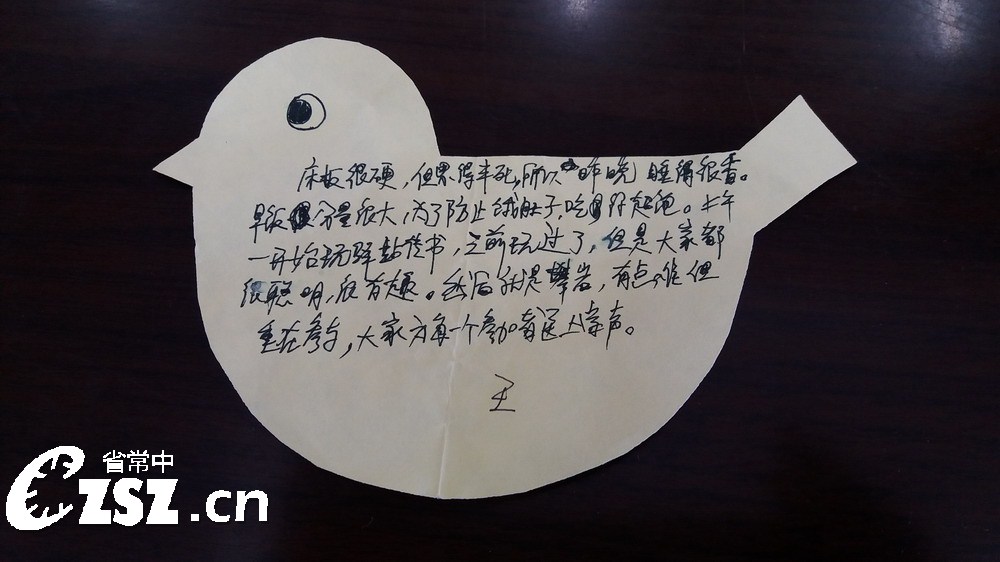 床板很硬,但累得半死,所以昨晚睡得很香。
早饭分量很大,为了防止饿肚子,吃得好起饱。上午
一开始玩驿站传书,之前玩过了,但是大家都
很聪明,很有趣。然后就是攀岩,有点难但
重在参与,大家为每一个参加者送上掌声。
王
省常中
CZSZ.cn